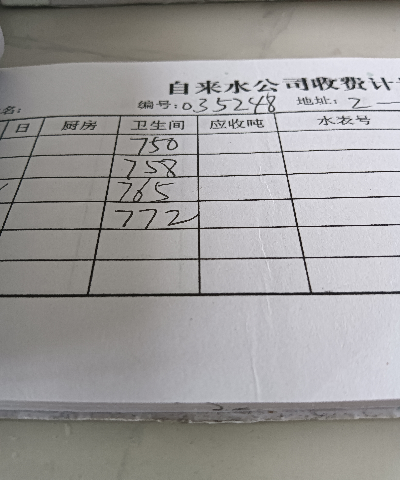 自来水公司收费计
名: 编号: 035248 地址: 2 —
日 厨房 卫生间 应收吨 水表号
750
758
765
772